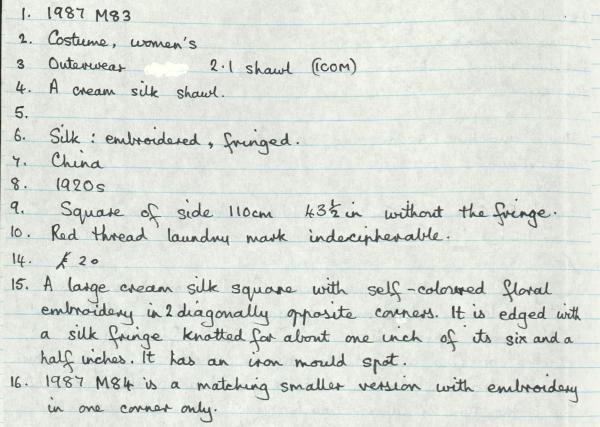 1. 1987 M83
2. Costume, women's
3 Outerwear 2.1 shawl (ICOM)
4. A cream silk shawl.
5.
6. Silk : embroidered, fringed.
7. China
8. 1920s
9. Square of side 110cm 43½in without the fringe.
10. Red thread laundry mark indecipherable.
14. £ 20
15. A large cream silk square with self-coloured floral
embroidery in 2 diagonally opposite corners. It is edged with
a silk fringe knotted for about one inch of its six and a
half inches. It has an iron mould spot.
16. 1987 M84 is a matching smaller version with embroidery
in one corner only.